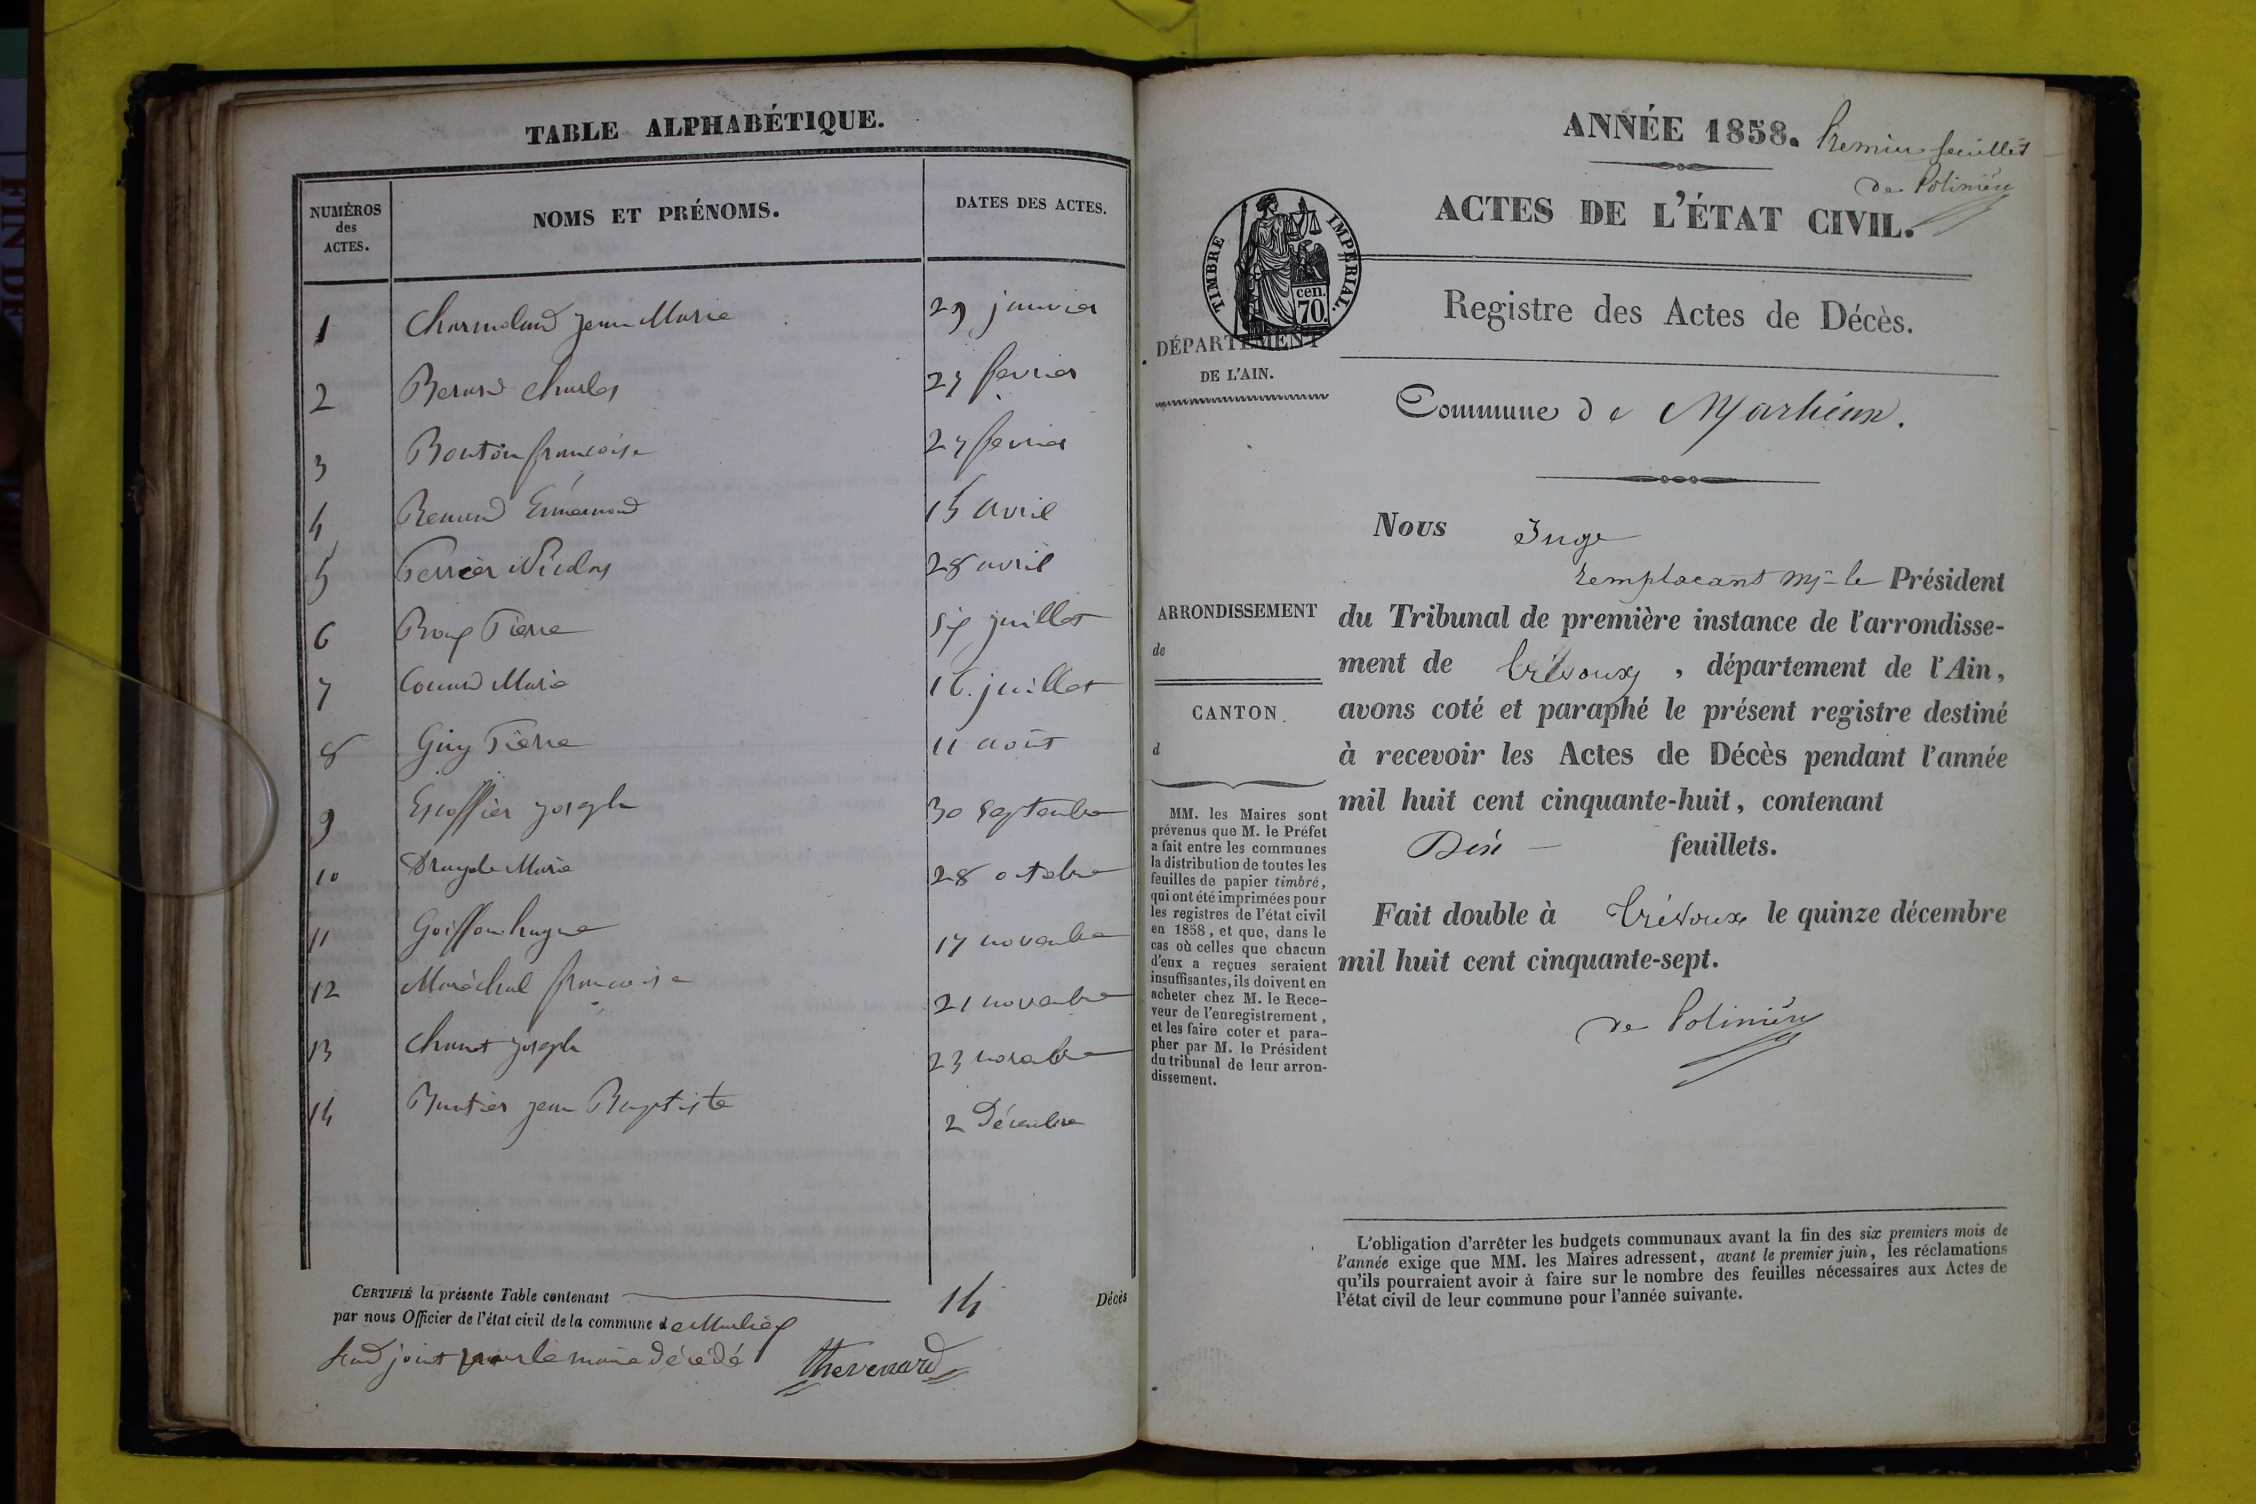 TABLE ALPHABÉTIQUE.
NUMÉROS
des
ACTES.
NOMS ET PRÉNOMS.
DATES DES ACTES.
1 jean Marie 29 janvier
2 Berard charles 27 fevrier
3 Bouton francoise 27 fevrier
4 Renaud 15 avril
5 Perrier Nicolas 28 avril
6 Pierre six juillet
7 Marie 16 juillet
8 Guy Pierre 11 août
9 Escoffier joseph 30 septembre
10 Marie 28 octobre
11 Goiffon 17 novembre
12 Maréchal francoise 21 novembre
13 Chanet joseph 23 novembre
14 jean Baptiste 2 Décembre
CERTIFIÉ la présente Table contenant 14 Décès
par nous Officier de l'état civil de la commune de
pour le maire décédé thevenard
ANNÉE 1858. Premier feuillet
de Polinière
ACTES DE L'ÉTAT CIVIL.
TIMBRE IMPÉRIAL.
cen.
70.
Registre des Actes de Décès.
DÉPARTEMENT
DE L'AIN.
Commune de Marlieux.
Nous Juge
remplaçant Mr le Président
du Tribunal de première instance de l'arrondisse-
ment de Trévoux, département de l'Ain,
avons coté et paraphé le présent registre destiné
à recevoir les Actes de Décès pendant l'année
mil huit cent cinquante-huit, contenant
Dix feuillets.
Fait double à Trévoux le quinze décembre
mil huit cent cinquante-sept.
de Polinière
ARRONDISSEMENT
de
CANTON
d
MM. les Maires sont
prévenus que M. le Préfet
a fait entre les communes
la distribution de toutes les
feuilles de papier timbré,
qui ont été imprimées pour
les registres de l'état civil
en 1858, et que, dans le
cas où celles que chacun
d'eux a reçues seraient
insuffisantes, ils doivent en
acheter chez M. le Rece-
veur de l'enregistrement,
et les faire coter et para-
pher par M. le Président
du tribunal de leur arron-
dissement.
L'obligation d'arrêter les budgets communaux avant la fin des six premiers mois de
l'année exige que MM. les Maires adressent, avant le premier juin, les réclamations
qu'ils pourraient avoir à faire sur le nombre des feuilles nécessaires aux Actes de
l'état civil de leur commune pour l'année suivante.